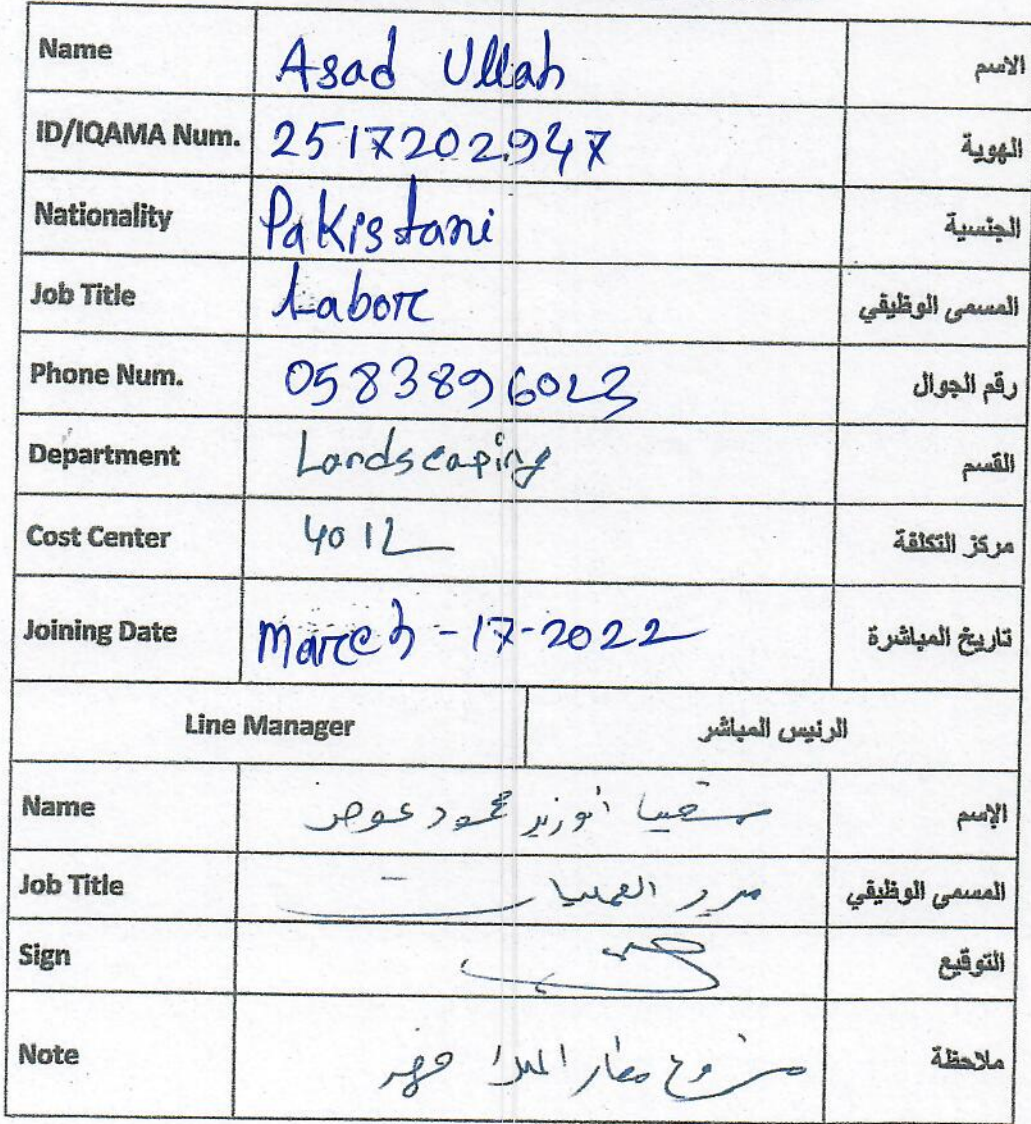 Name Asad Ullah الاسم
ID/IQAMA Num. 2517202947 الهوية
Nationality Pakistani الجنسية
Job Title Labore المسمى الوظيفي
Phone Num. 0583896023 رقم الجوال
Department Landscaping القسم
Cost Center 4012 مركز التكلفة
Joining Date March-17-2022 تاريخ المباشرة
Line Manager الرئيس المباشر
Name محمود عوض الإسم
Job Title مدير العمليات المسمى الوظيفي
Sign التوقيع
Note مشروع مطار الملك فهد ملاحظة